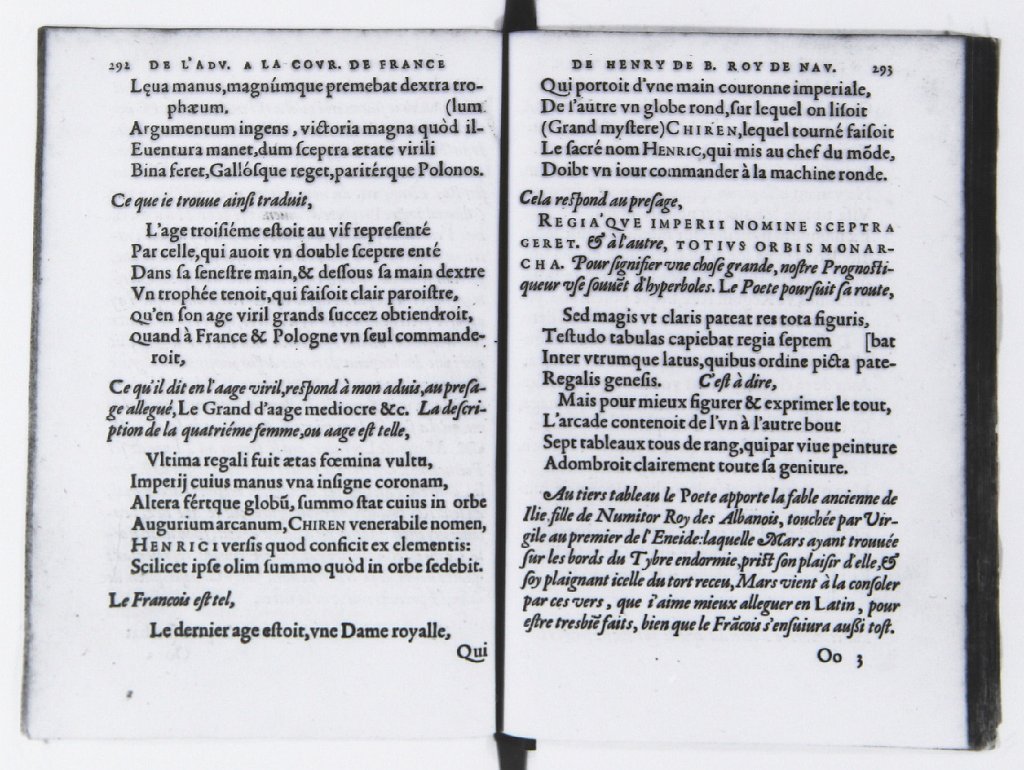 292 DE L'ADV. A LA COVR. DE FRANCE
Lęua manus,magnúmque premebat dextra tro-
phæum. (lum
Argumentum ingens, victoria magna quòd il-
Euentura manet,dum sceptra ætate virili
Bina feret,Gallósque reget,paritérque Polonos.
Ce que ie trouue ainsi traduit,
L'age troisiéme estoit au vif representé
Par celle,qui auoit vn double sceptre enté
Dans sa senestre main,& dessous sa main dextre
Vn trophée tenoit,qui faisoit clair paroistre,
Qu'en son age viril grands succez obtiendroit,
Quand à France & Pologne vn seul commande-
roit,
Ce qu'il dit en l'aage viril,respond à mon aduis,au presa-
ge allegué,Le Grand d'aage mediocre &c. La descri-
ption de la quatriéme femme,ou aage est telle,
Vltima regali fuit ætas fœmina vultu,
Imperij cuius manus vna insigne coronam,
Altera fértque globũ, summo stat cuius in orbe
Augurium arcanum, CHIREN venerabile nomen,
HENRICI versis quod conficit ex elementis:
Scilicet ipse olim summo quòd in orbe sedebit.
Le Francois est tel,
Le dernier age estoit,vne Dame royalle,
Qui
DE HENRY DE B. ROY DE NAV. 293
Qui portoit d'vne main couronne imperiale,
De l'autre vn globe rond,sur lequel on lisoit
(Grand mystere)CHIREN,lequel tourné faisoit
Le sacré nom HENRIC,qui mis au chef du mõde,
Doibt vn iour commander à la machine ronde.
Cela respond au presage,
REGIA'QVE IMPERII NOMINE SCEPTRA
GERET. & à l'autre, TOTIVS ORBIS MONAR-
CHA. Pour signifier vne chose grande, nostre Prognosti-
queur vse souuẽt d'hyperboles. Le Poete poursuit sa route,
Sed magis vt claris pateat res tota figuris,
Testudo tabulas capiebat regia septem [bat
Inter vtrumque latus,quibus ordine picta pate-
Regalis genesis. C'est à dire,
Mais pour mieux figurer & exprimer le tout,
L'arcade contenoit de l'vn à l'autre bout
Sept tableaux tous de rang,quipar viue peinture
Adombroit clairement toute sa geniture.
Au tiers tableau le Poete apporte la fable ancienne de
Ilie,fille de Numitor Roy des Albanois, touchée par Vir-
gile au premier de l'Eneide:laquelle Mars ayant trouuée
sur les bords du Tybre endormie,prist son plaisir d'elle,&
soy plaignant icelle du tort receu,Mars vient à la consoler
par ces vers, que i'aime mieux alleguer en Latin, pour
estre tresbiẽ faits, bien que le Frãcois s'ensuiura aussi tost.
Oo 3